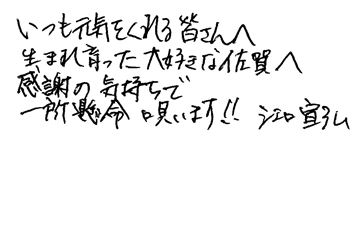 いつも元気をくれる皆さんへ
生まれ育った大好きな佐賀へ
感謝の気持ちで
一所懸命 唄います!! 江口